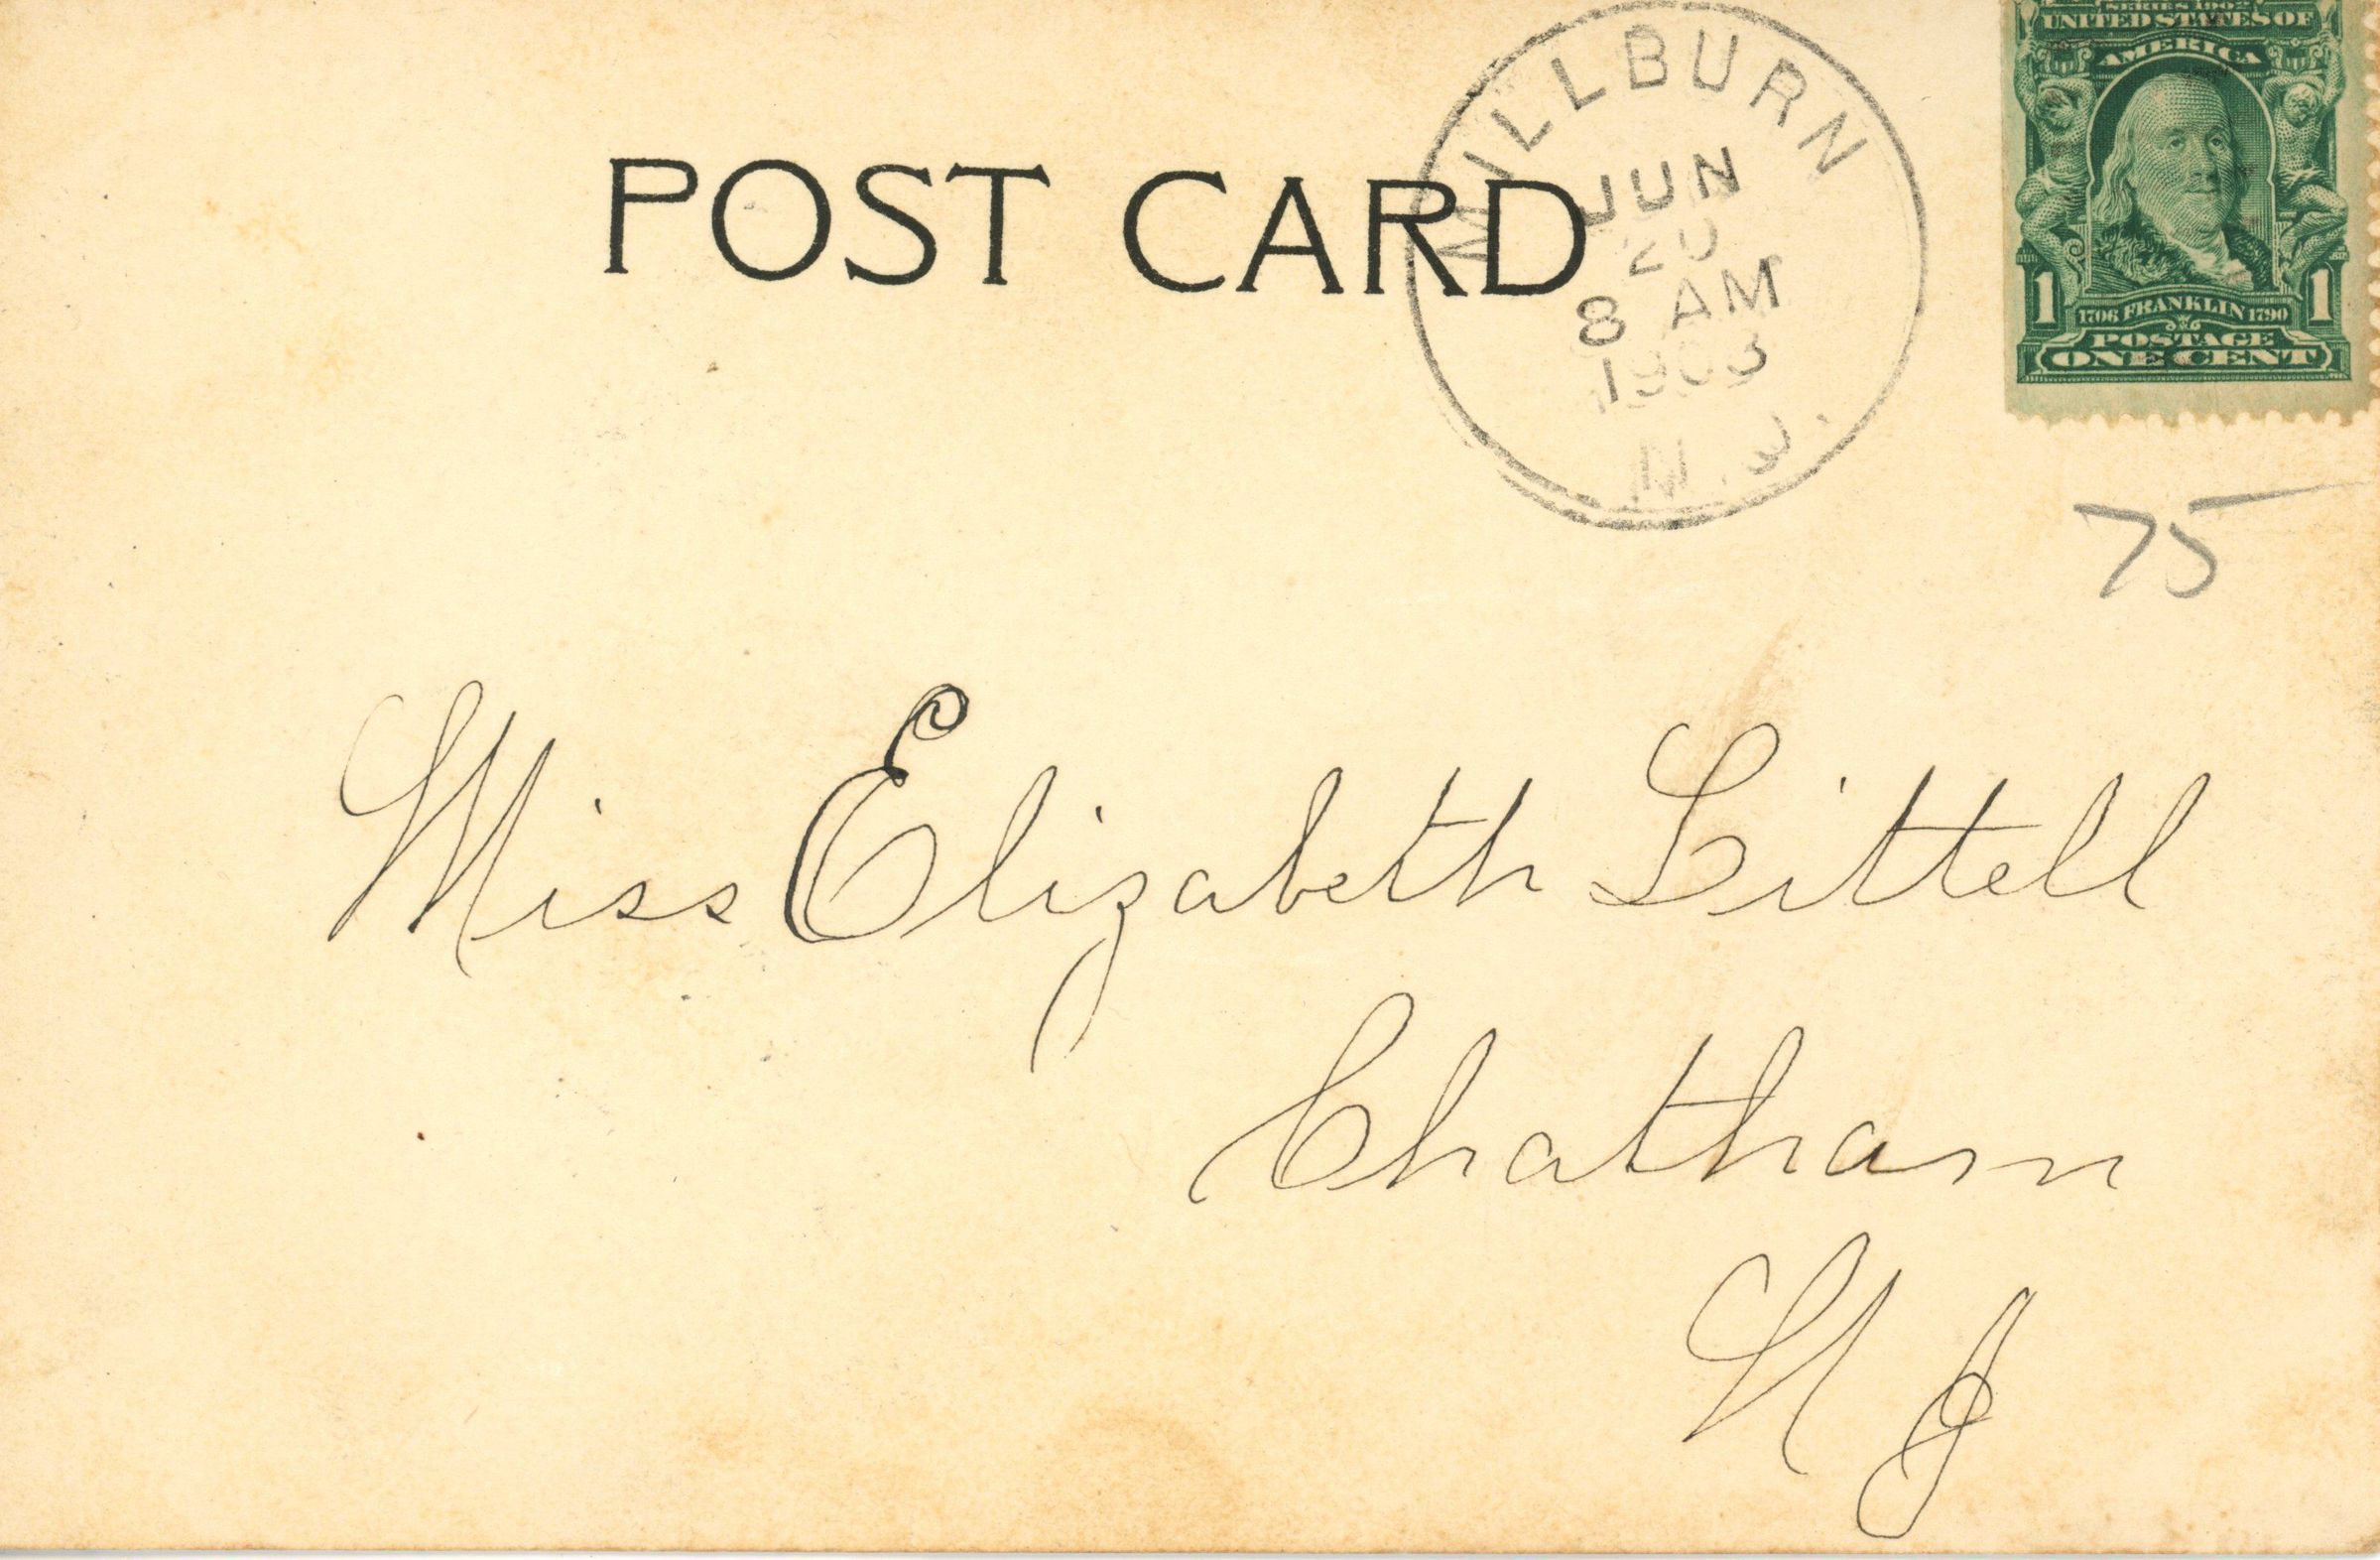 SERIES 1902
UNITED STATES OF
AMERICA
1 1
1706 FRANKLIN 1790
POSTAGE
ONE CENT
MILLBURN
JUN
20
8 AM
1903
N.J.
POST CARD
75
Miss Elizabeth Littell
Chatham
N J